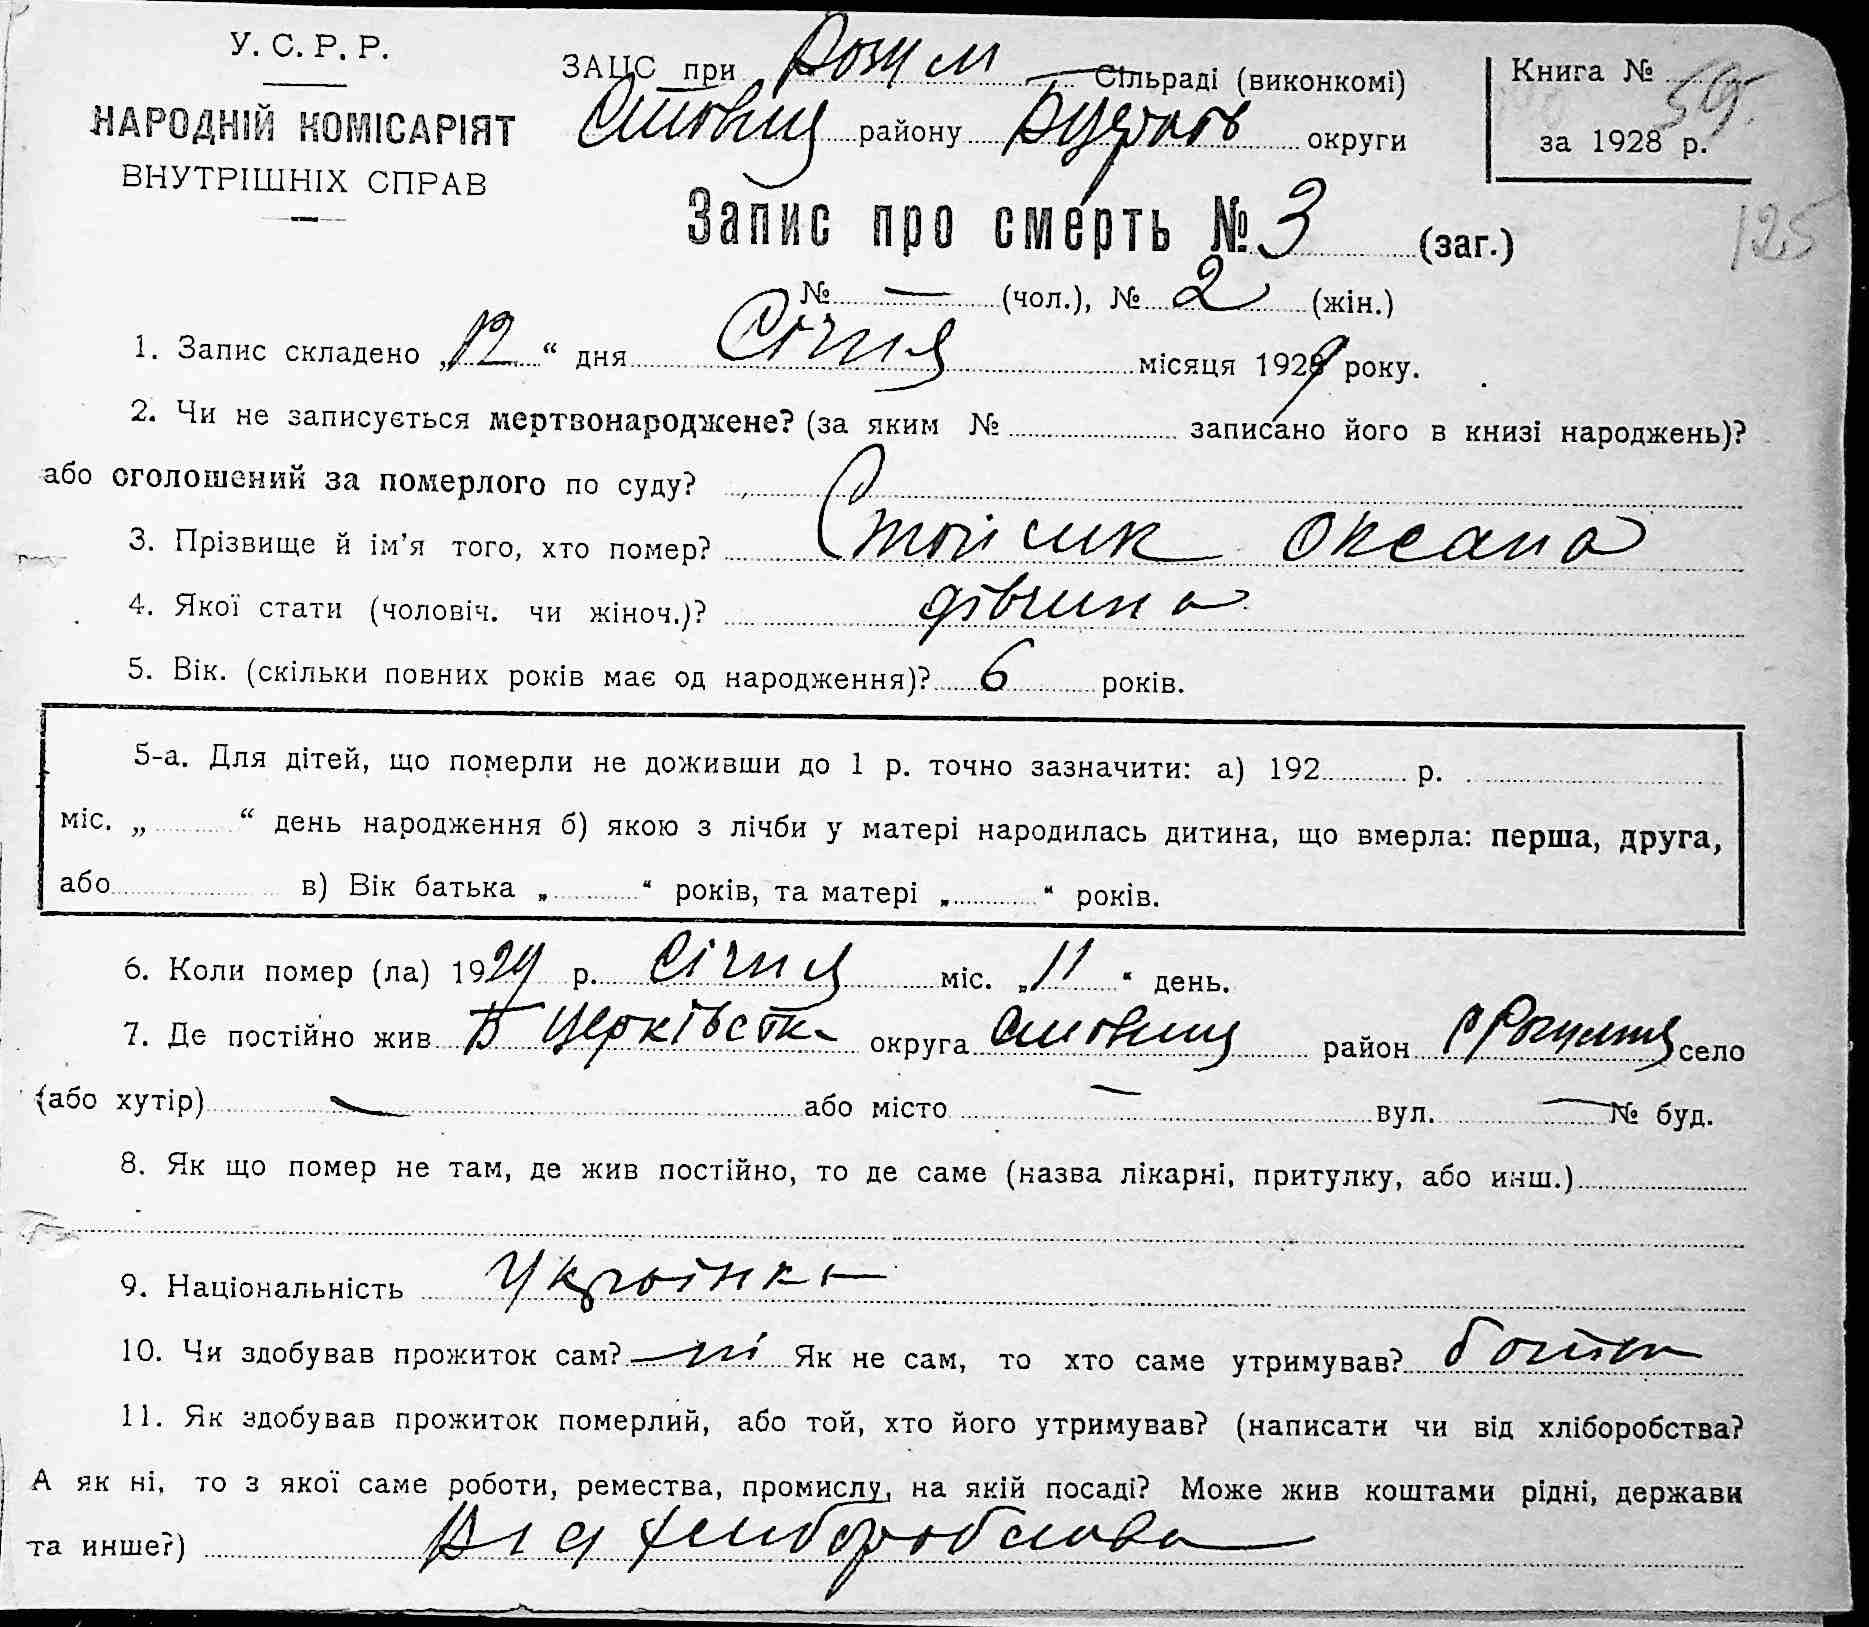 У. С. Р. Р.
НАРОДНІЙ КОМІСАРІЯТ
ВНУТРІШНІХ СПРАВ
ЗАЦС при Сільраді (виконкомі)
району округи
Книга № 59.
за 1928 р.
125
Запис про смерть № 3 (заг.)
№ — (чол.), № 2 (жін.)
1. Запис складено „12“ дня Січня місяця 1929 року.
2. Чи не записується мертвонароджене? (за яким № записано його в книзі народжень)?
або оголошений за померлого по суду?
3. Прізвище й ім’я того, хто помер? Оксана
4. Якої стати (чоловіч. чи жіноч.)? дівчина
5. Вік. (скільки повних років має од народження)? 6 років.
5-а. Для дітей, що померли не доживши до 1 р. точно зазначити: а) 192 р.
міс. „ “ день народження б) якою з лічби у матері народилась дитина, що вмерла: перша, друга,
або в) Вік батька „ “ років, та матері „ “ років.
6. Коли помер (ла) 1929 р. Січня міс. „11“ день.
7. Де постійно жив Б Церківська округа район село
(або хутір) — або місто — вул. — № буд.
8. Як що помер не там, де жив постійно, то де саме (назва лікарні, притулку, або инш.)
9. Національність Українка
10. Чи здобував прожиток сам? ні Як не сам, то хто саме утримував? батько
11. Як здобував прожиток померлий, або той, хто його утримував? (написати чи від хліборобства?
А як ні, то з якої саме роботи, ремества, промислу, на якій посаді? Може жив коштами рідні, держави
та инше?) Від хліборобства